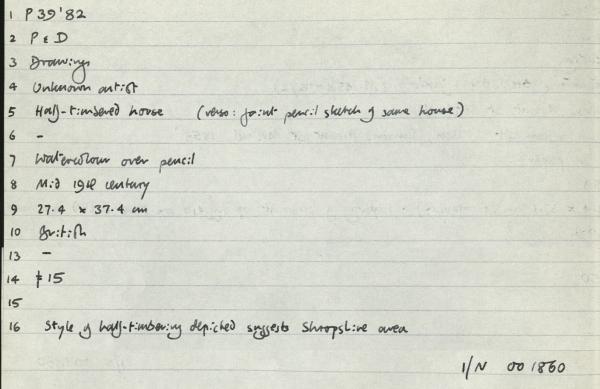 1 P 39'82
2 P & D
3 Drawings
4 Unknown artist
5 Half-timbered house (verso: faint pencil sketch of same house)
6 -
7 Watercolour over pencil
8 Mid 19th century
9 27.4 x 37.4 cm
10 British
13 -
14 15
15
16 Style of half-timbering depicted suggests Shropshire area
I/N 001860